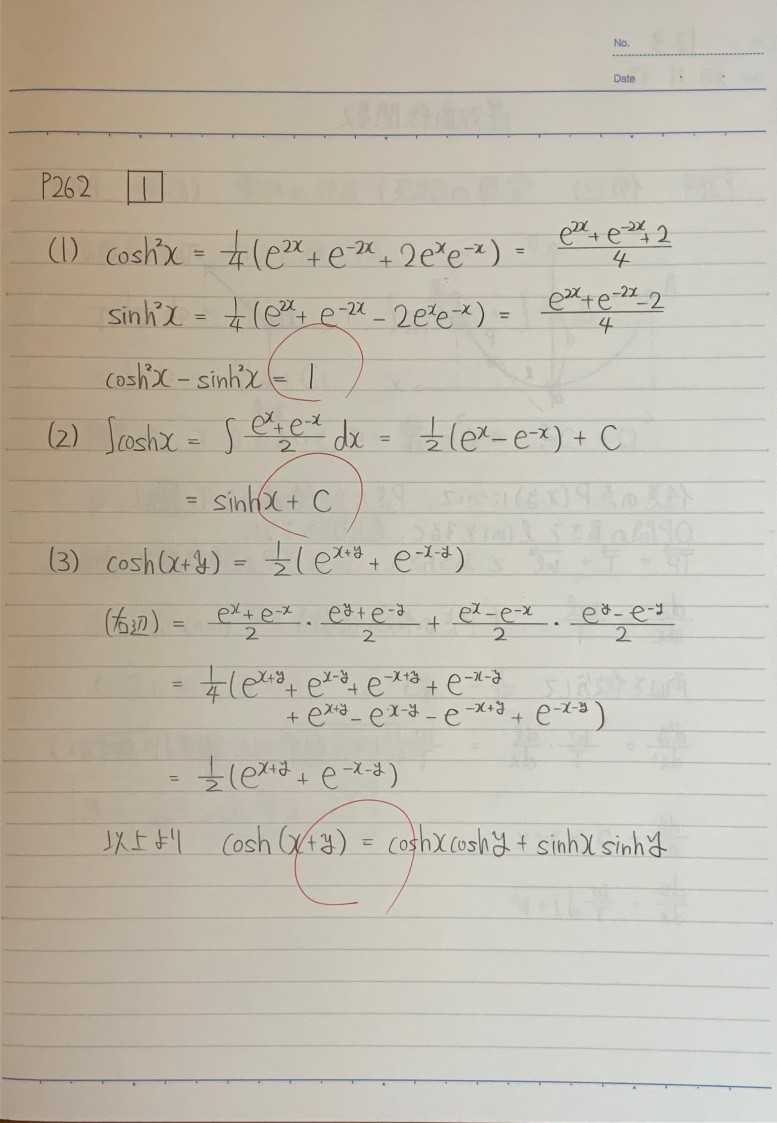 No.
Date
P262 1
(1) cosh²x = 1/4 (e^{2x} + e^{-2x} + 2e^x e^{-x}) = (e^{2x} + e^{-2x} + 2)/4
sinh²x = 1/4 (e^{2x} + e^{-2x} - 2e^x e^{-x}) = (e^{2x} + e^{-2x} - 2)/4
cosh²x - sinh²x = 1
(2) ∫coshx = ∫ (e^x + e^{-x})/2 dx = 1/2 (e^x - e^{-x}) + C
= sinhx + C
(3) cosh(x+y) = 1/2 (e^{x+y} + e^{-x-y})
(右辺) = (e^x + e^{-x})/2 · (e^y + e^{-y})/2 + (e^x - e^{-x})/2 · (e^y - e^{-y})/2
= 1/4 (e^{x+y} + e^{x-y} + e^{-x+y} + e^{-x-y}
+ e^{x+y} - e^{x-y} - e^{-x+y} + e^{-x-y})
= 1/2 (e^{x+y} + e^{-x-y})
以上より cosh(x+y) = coshx coshy + sinhx sinhy